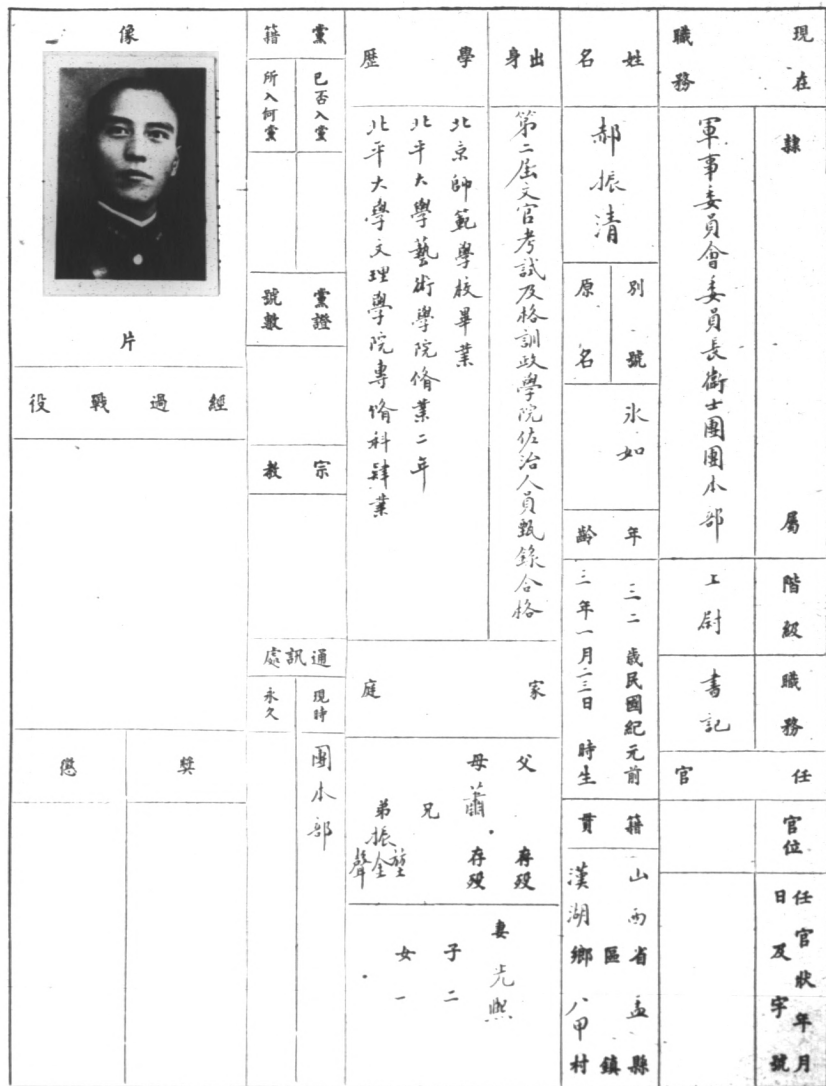 現在職務
隸屬
軍事委員會委員長衛士團團本部
階級
上尉
職務
書記
任官
官位
任官狀年月日及字號
姓名
郝振清
別號
原名
氷如
年齡
三二歲民國紀元前
三年一月二三日 時生
籍貫
山西省盂縣
區 鎮
漢湖鄉八甲村
出身
第二屆文官考試及格訓政學院佐治人員甄錄合格
學歷
北京師範學校畢業
北平大學藝術學院脩業二年
北平大學文理學院專脩科肄業
家庭
父 存歿
母 蕭 存歿
兄
弟 振
聲金堃
妻 光熙
子 二
女 一
黨籍
已否入黨
所入何黨
黨證
號數
宗教
通訊處
現時
永久
團本部
像
片
經過戰役
獎
懲